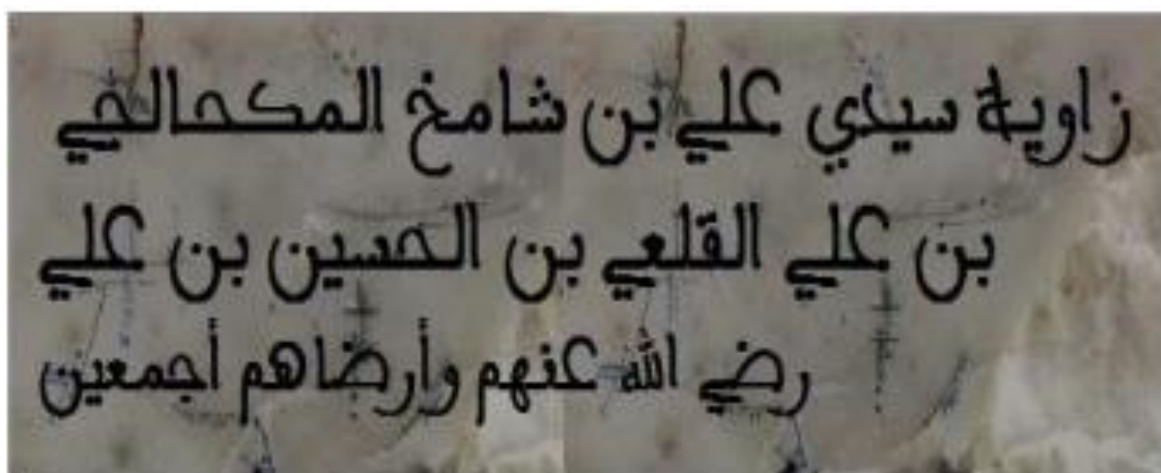 زاوية سيدي علي بن شامخ المكحالجي
بن علي القلعي بن الحسين بن علي
رضي الله عنهم وأرضاهم أجمعين